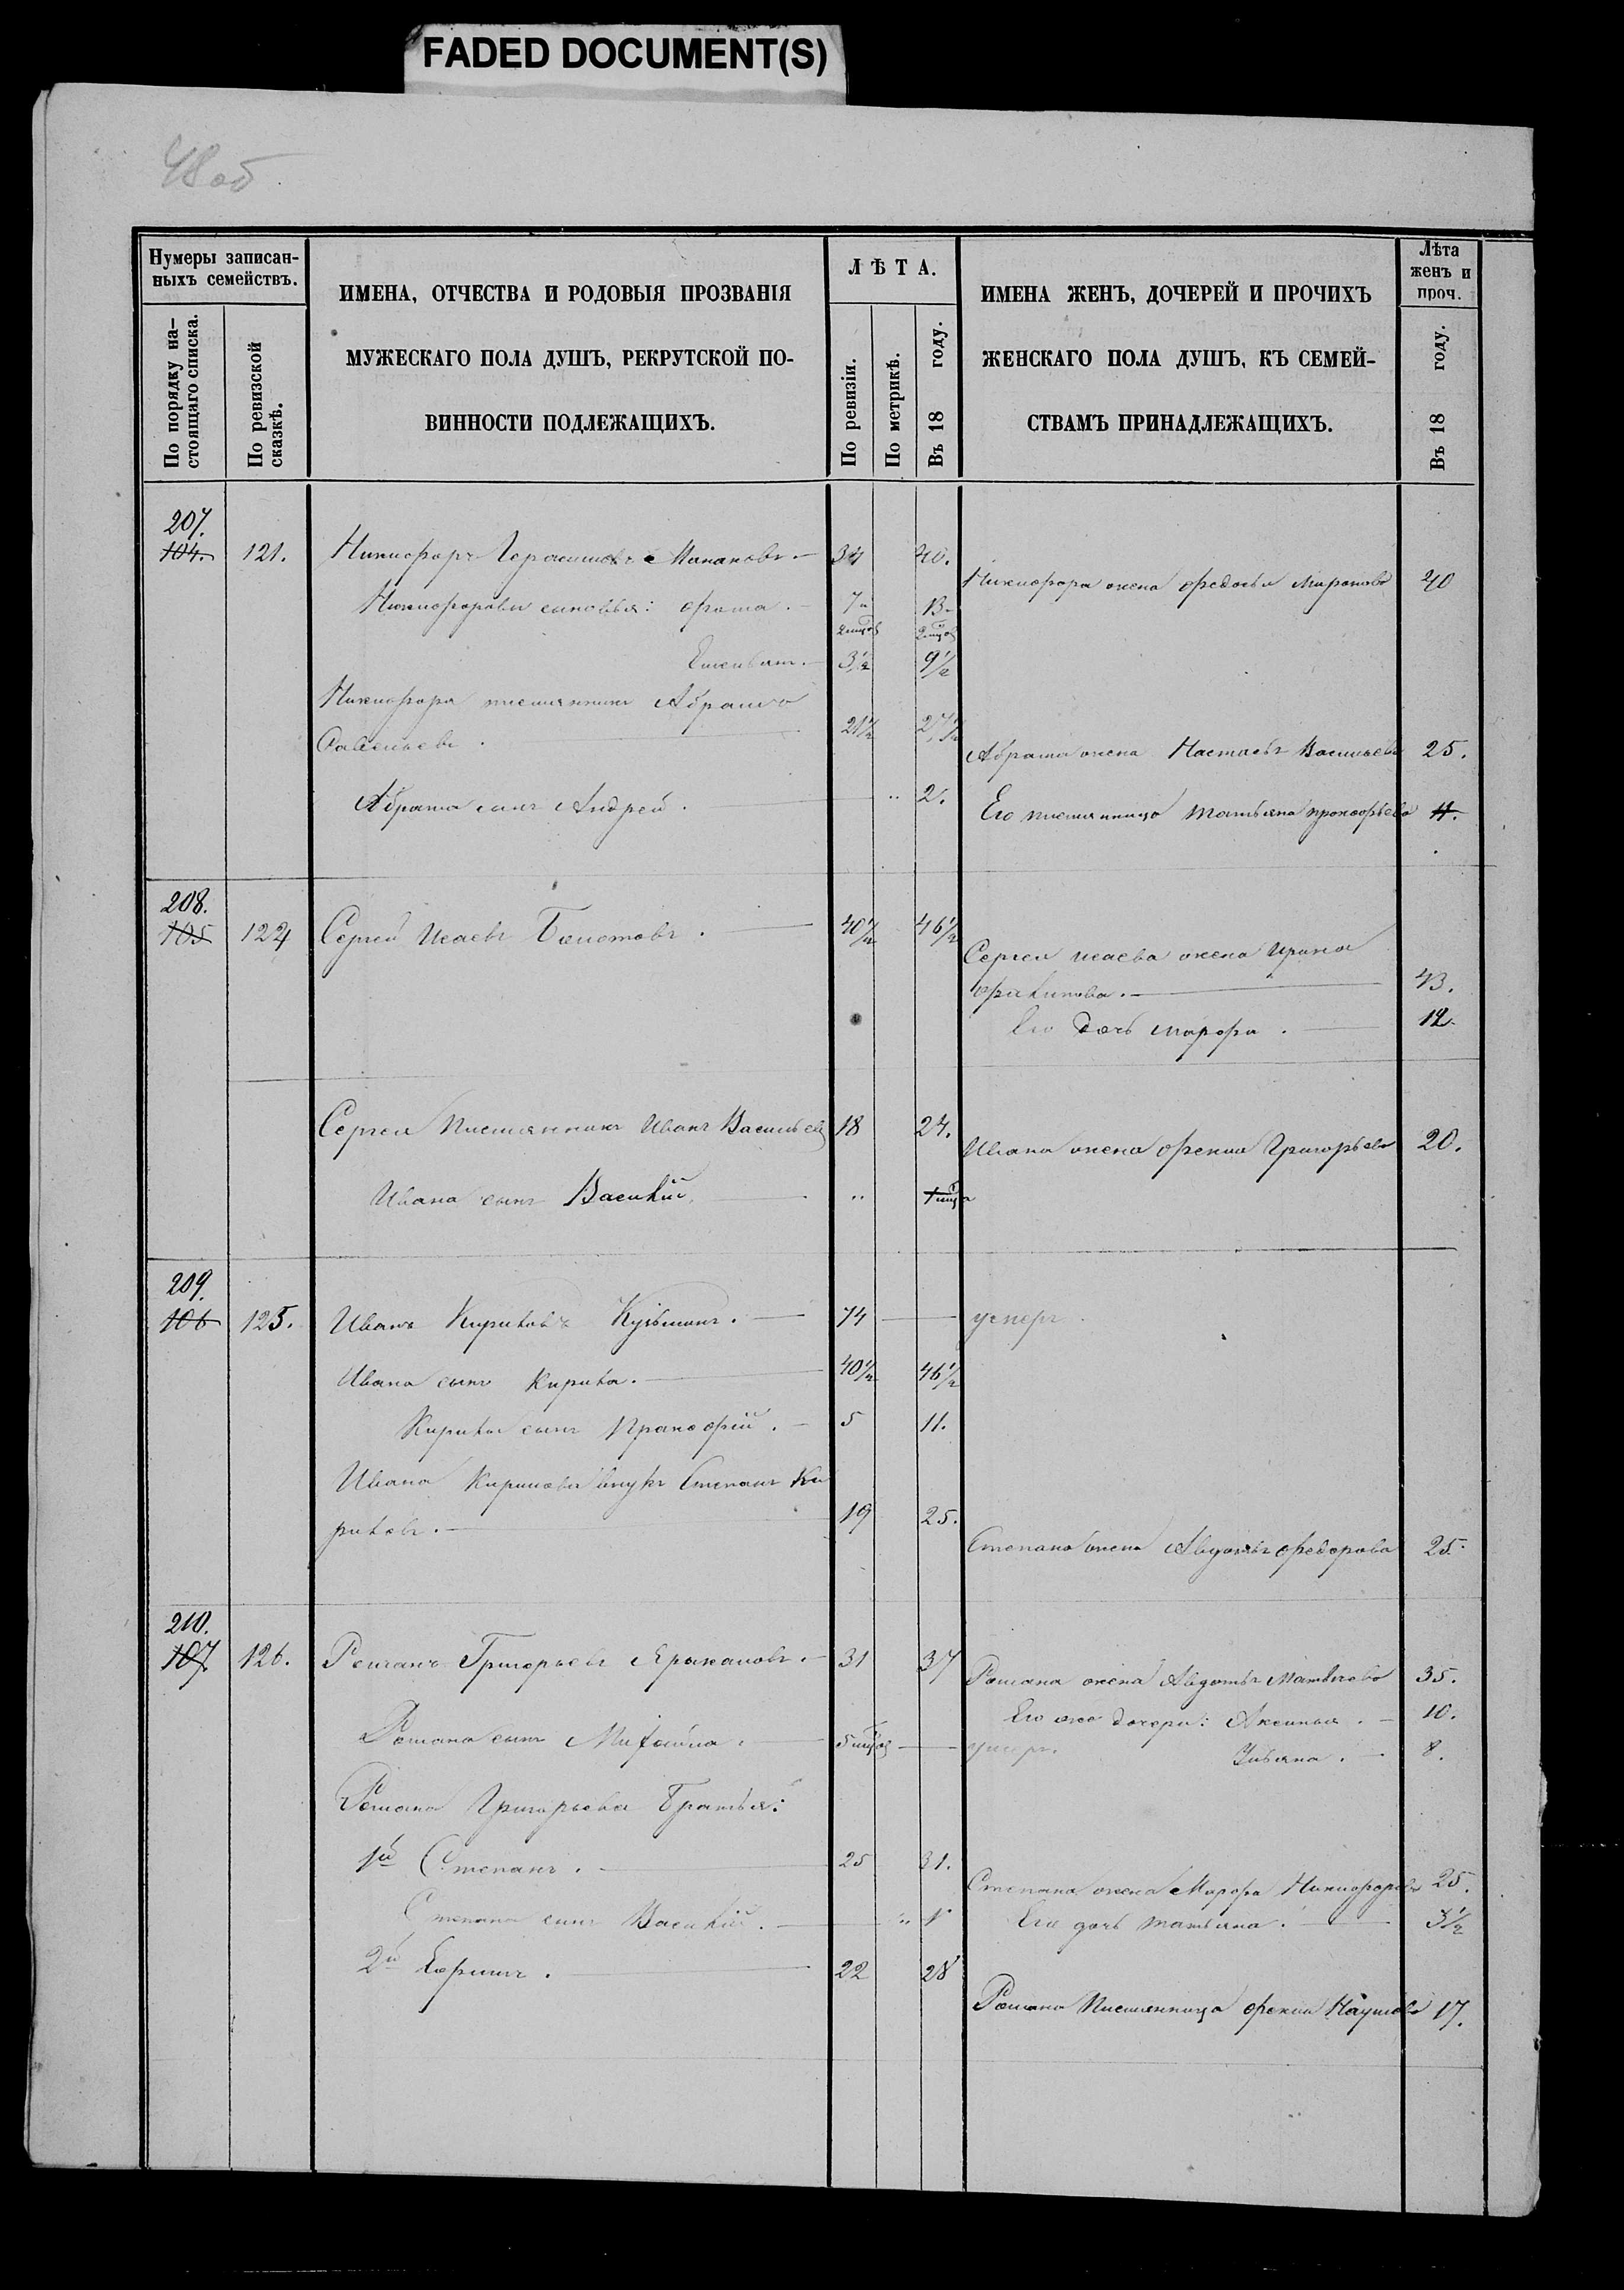 FADED DOCUMENT(S)
48 об
Нумеры записан-
ныхъ семействъ.
По порядку на-
стоящаго списка.
По ревизской
сказкѣ.
ИМЕНА, ОТЧЕСТВА И РОДОВЫЯ ПРОЗВАНІЯ
МУЖЕСКАГО ПОЛА ДУШЪ, РЕКРУТСКОЙ ПО-
ВИННОСТИ ПОДЛЕЖАЩИХЪ.
ЛѢТА.
По ревизіи.
По метрикѣ.
Въ 18 году.
ИМЕНА ЖЕНЪ, ДОЧЕРЕЙ И ПРОЧИХЪ
ЖЕНСКАГО ПОЛА ДУШЪ, КЪ СЕМЕЙ-
СТВАМЪ ПРИНАДЛЕЖАЩИХЪ.
Лѣта
женъ и
проч.
Въ 18 году.
207.
104. 121. Никифоръ Герасимовъ 34 40.
Никифора жена Федосья Миронова 40
Никифоровы сыновья: Фома. 7 13
2 мцов 2 мцов
Емельянъ. 3 1/2 9 1/2
Никифора племянникъ Абрамъ
Савельевъ. 21 1/2 27 1/2
Абрама жена Настасья Васильева 25.
Абрама сынъ Андрей. " 2.
Его племянница Татьяна Прокофьева 11.
208.
105 124 Сергей Исаевъ Болотовъ. 40 1/2 46 1/2
Сергея Исаева жена Ирина
Филипова. 43.
Его дочь Марфа. 12.
Сергея Племянникъ Иванъ Васильевъ 18 24.
Ивана жена Фекла Григорьева 20.
Ивана сынъ Василій. "
209.
106 125. Иванъ Кириловъ Кузьминъ. 74 умеръ.
Ивана сынъ Кирила. 40 1/2 46 1/2
Кирилы сынъ Прокофій. 5 11.
Ивана Кирилова внукъ Степанъ Ки
риловъ. 19 25.
Степана жена Авдотья Федорова 25.
210.
107 126. Романъ Григорьевъ 31 37
Романа жена Авдотья Матвѣева 35.
Его же дочери: Аксинья. 10.
Романа сынъ Михайла. 5 мцов умеръ.
Ульяна. 8.
Романа Григорьева Братья:
1й Степанъ. 25 31.
Степана жена Марфа Никифорова 25.
Степана сынъ Василій. " 1
Его дочь Татьяна. 3 1/2
2й Ефимъ. 22 28
Романа Племянница Фекла Наумова 17.